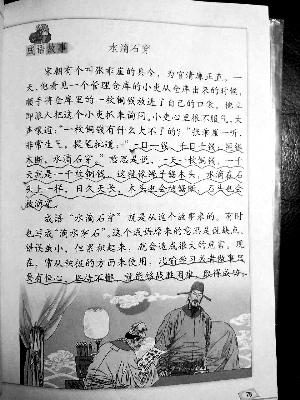 成语故事
水滴石穿
宋朝有个叫张乖崖的县令，为官清廉正直。一
天，他看见一个管理仓库的小吏从仓库出来的时候，
顺手将仓库里的一枚铜钱放进了自己的口袋。他立
即派人把这个小吏抓来审问。小吏心里很不服气，大
声嚷道：“一枚铜钱有什么大不了的？”张乖崖一听，
非常生气，提笔批道：“一日一钱，千日千钱，绳锯
木断，水滴石穿。”意思是说，一天一枚铜钱，一千
天就是一千枚铜钱。这就像绳子锯木头，水滴在石
头上一样，日久天长，木头也会被锯断，石头也会
被滴穿。
成语“水滴石穿”就是从这个故事来的。有时
也写成“滴水穿石”。这个成语原来的意思是说缺点、
错误虽小，但累积起来，就会造成很大的危害。现
在，常从积极的方面来使用，比喻学习或者做事只
要有恒心，坚持不懈，就能够战胜困难，取得成功。